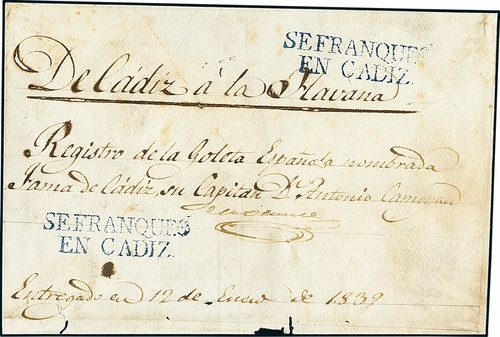 SE FRANQUEO
EN CADIZ.
De Cádiz á la Havana
Registro de la Goleta Española nombrada
Fama de Cádiz, su Capitan Dn. Antonio
SE FRANQUEO
EN CADIZ.
Entregado en 12 de Enero de 1839